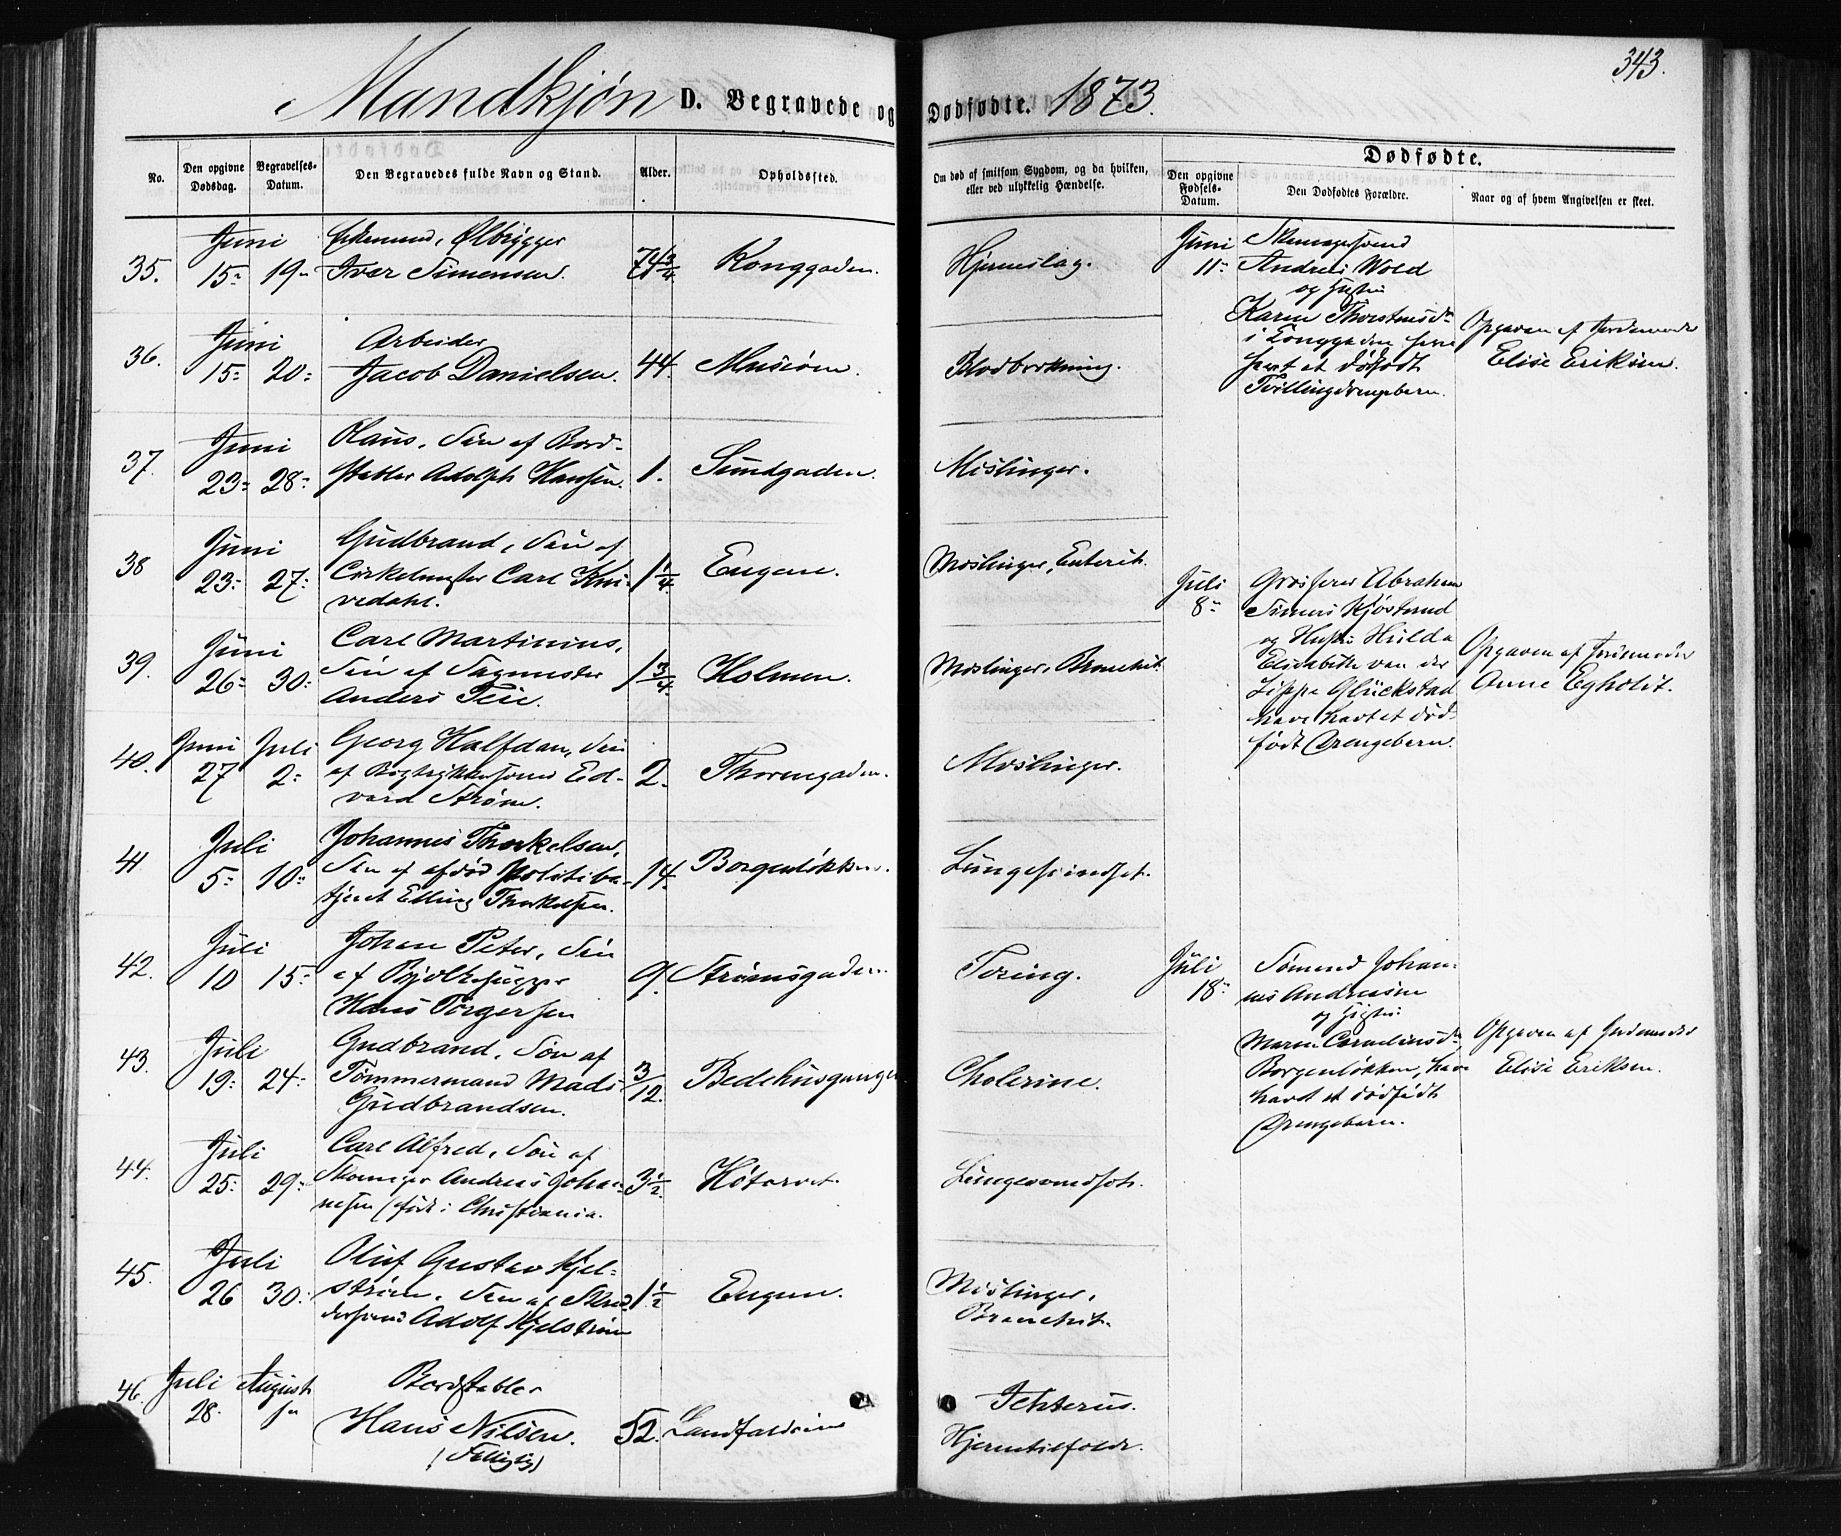 343.
Mandkjøn D. Begravede og Dødfødte. 1873.
No.
Den opgivne Dødsdag.
Begravelses-Datum.
Den Begravedes fulde Navn og Stand.
Alder.
Opholdssted.
Om død af smitsom Sygdom, og da hvilken,
eller ved ulykkelig Hændelse.
Dødfødte.
Den opgivne Fødsels-Datum.
Den Dødfødtes Forældre.
Naar og af hvem Angivelsen er skeet.
Juni Ølbrygger
35. 15 19 Ivar Simensen. 74 3/4 Konggaden. Hjerneslag.
Juni Arbeider
36. 15 20 Jacob Danielsen. 44. Blodbrækning.
Juni Olaus, Søn af Bord-
37. 23 28 stabler Adolph Hansen. 1. Sundgaden. Mæslinger.
Juni Gudbrand, Søn af
38 23 27 Carl 1 1/4 Engene. Mæslinger, Enterit.
vedahl.
Juni Carl Martinius,
39. 26 30 Søn af Sagmester 1 3/4 Holmen. Mæslinger, Bronchit.
Anders Teie.
Juni Juli Georg Halfdan, Søn
40. 27 2 af Ed- 2. Thornegaden. Mæslinger.
vard Strøm.
Juli Johannes Thorkelsen,
41 5 10 Søn af afdød Politibe- 14. Borgenløkken.
tjent Elling Thorkelsen.
Juli Johan Peter, Søn
42. 10 15 af 9. Strømsgaden. Tæring.
Hans Torgersen
Juli Gudbrand, Søn af
43. 19 24 Tømmermand Mads 3/12. Bedehusgangen Cholerine.
Gudbrandsen.
Juli Carl Alfred, Søn af
44. 25 29 Skomager Andreas Johan- 3 1/2 Høtorvet.
nesen (født i Christiania.
Juli Oluf Gustav Kjel-
45. 26 30 strøm, Søn af Skræd- 1 1/2 Engene. Mæslinger,
dersvend Adolf Kjelstrøm Bronchit.
Juli August Bordstabler
46. 28 Hans Nilsen. 52. Ickterus.
(Fattiglig)
Juni Skomagersvend
11 Andreas Wold
og Hustru
Karen Thorstensdr
i Konggaden have
havt et dødfødt
Tvillingdrengebarn.
Opgaven af Jordemoder
Elise Eriksen.
Juli Grosserer Abraham
8 Simen Kjøsterud
og Hustru Hulda
Elisabethe van der
Lippe Glückstad
have havt et død-
født Drengebarn.
Opgaven af Jordemoder
Anne Egholdt.
Juli Sømand Johan-
18 nes Andreasen
og Hustru
Maren Corneliusdr
Borgenløkken, have
havt et dødfødt
Drengebarn.
Opgaven af Jordemoder
Elise Eriksen.